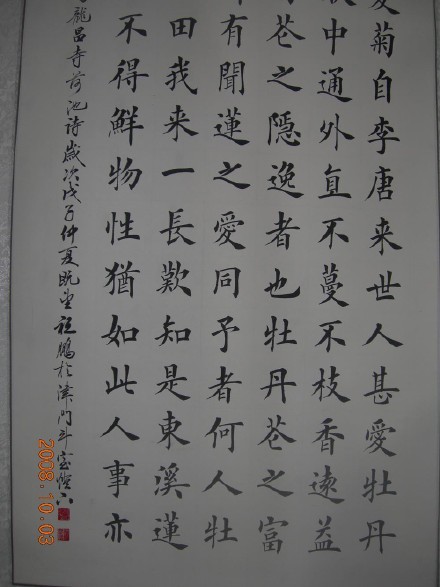 菊自李唐来世人甚愛牡丹
中通外直不蔓不枝香遠益
花之隱逸者也牡丹花之富
有聞蓮之愛同予者何人牡
田我来一長歎知是東溪蓮
不得鮮物性猶如此人事亦
龍昌寺荷池詩歲次戊子仲夏既望祖鵬於津門斗室燈下
2008.10.03